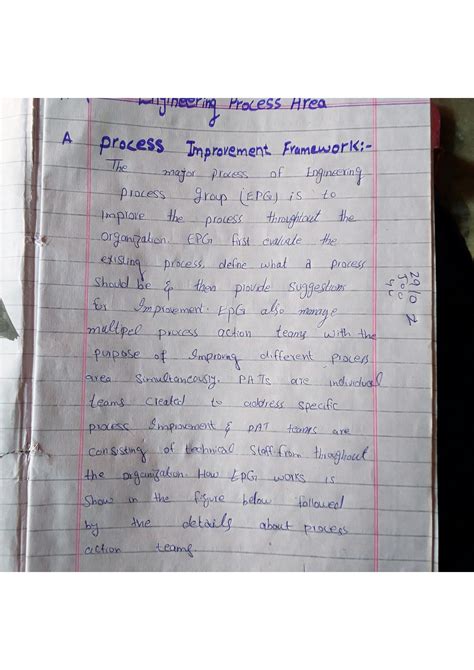 Engineering Process Area
A Process Improvement Framework:-
The major process of Engineering
process Group (EPG) is to
improve the process throughout the
organization. EPG first evaluate the
existing process, define what a process
should be & then provide suggestions
for Improvement. EPG also manage
multipel process action teams with the
purpose of Improving different process
area simultaneously. PATs are individual
teams created to address specific
process Improvement & PAT teams are
consisting of technical staff from throughout
the organization. How EPG works is
show in the figure below followed
by the details about process
action teams.